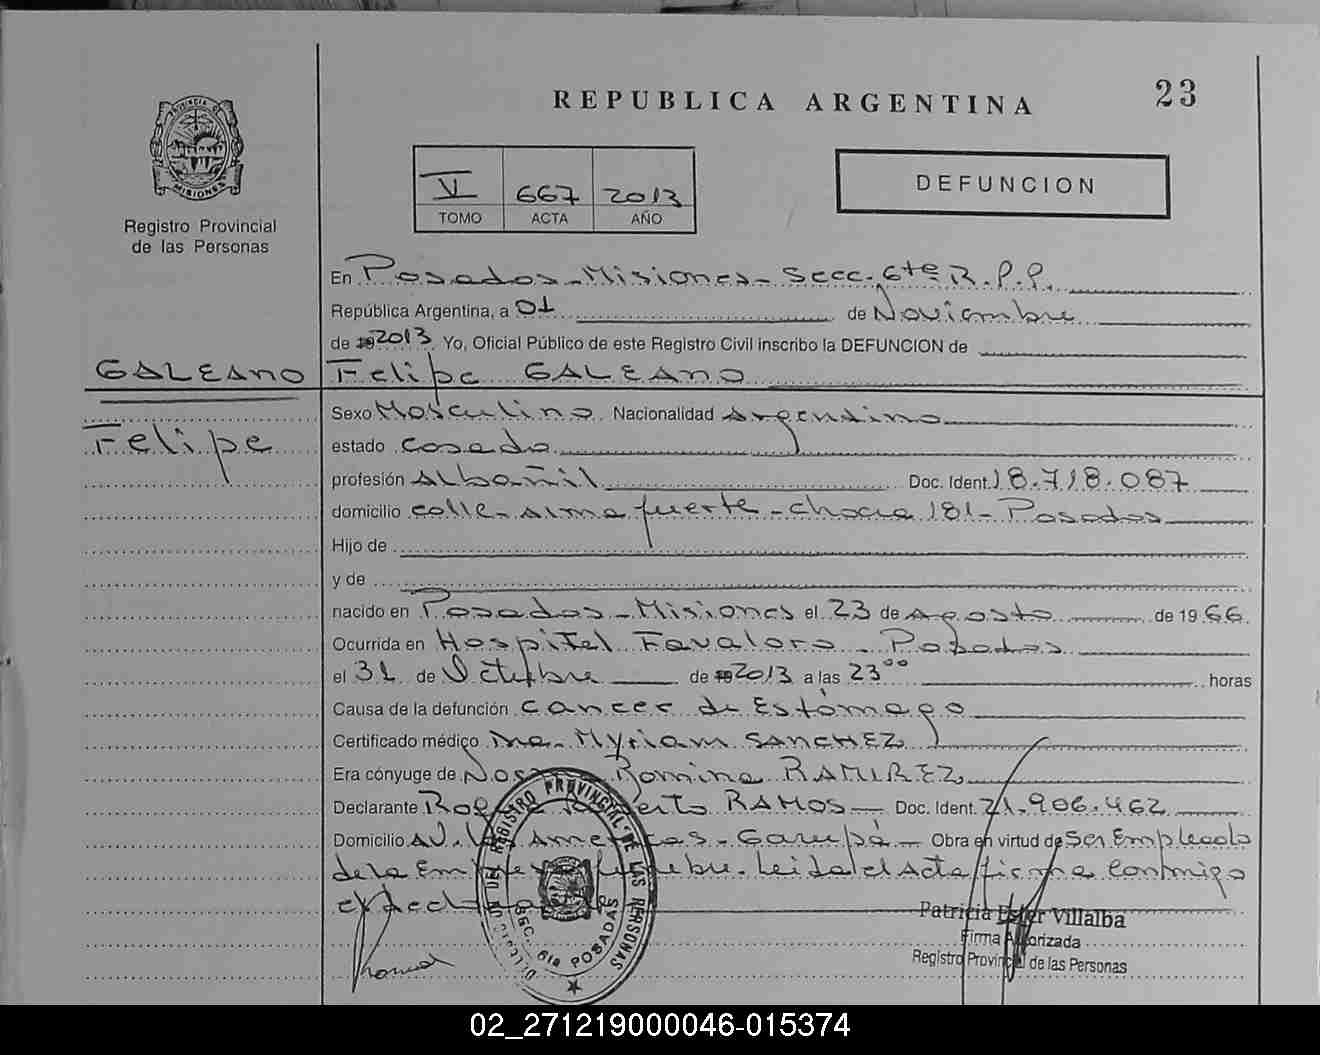 23
REPUBLICA ARGENTINA
PROVINCIA DE
MISIONES
Registro Provincial
de las Personas
VI 667 2013
TOMO ACTA AÑO
DEFUNCION
En Posadas - Misiones - Secc. 6ta R.P.P.
República Argentina, a 01 de Noviembre
de 2013 Yo, Oficial Público de este Registro Civil inscribo la DEFUNCION de
GALEANO Felipe GALEANO
Sexo Masculino Nacionalidad Argentino
Felipe
estado casado
profesión Albañil Doc. Ident. 18.718.087
domicilio calle - Almafuerte - chacra 181 - Posadas
Hijo de
y de
nacido en Posadas - Misiones el 23 de Agosto de 1966
Ocurrida en Hospital Favaloro - Posadas
el 31 de Octubre de 2013 a las 23°° horas
Causa de la defunción cancer de Estómago
Certificado médico Dra. Myriam SANCHEZ
Era cónyuge de Romina RAMIREZ
Declarante RAMOS - Doc. Ident. 21.906.462
Domicilio AV. Las Americas - Garupá - Obra en virtud de Ser Empleado
de la Fúnebre. Leida el Acta firma Conmigo
el
Patricia Ester Villalba
Firma Autorizada
Registro Provincial de las Personas
DIRECCION DEL REGISTRO PROVINCIAL DE LAS PERSONAS
SEC. 6ta POSADAS
02_271219000046-015374